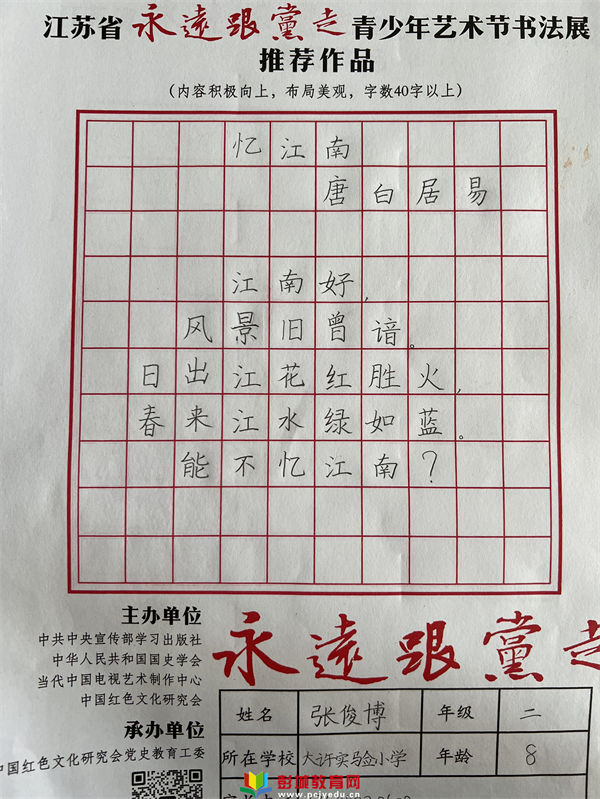 江苏省永遠跟黨走青少年艺术节书法展
推荐作品
(内容积极向上，布局美观，字数40字以上)
忆江南
唐白居易
江南好，
风景旧曾谙。
日出江花红胜火，
春来江水绿如蓝。
能不忆江南？
主办单位
中共中央宣传部学习出版社
中华人民共和国国史学会
当代中国电视艺术制作中心
中国红色文化研究会
承办单位
中国红色文化研究会党史教育工委
永遠跟黨走
姓名 张俊博 年级 二
所在学校 大许实验小学 年龄 8
彭城教育网
www.pcjyedu.cn